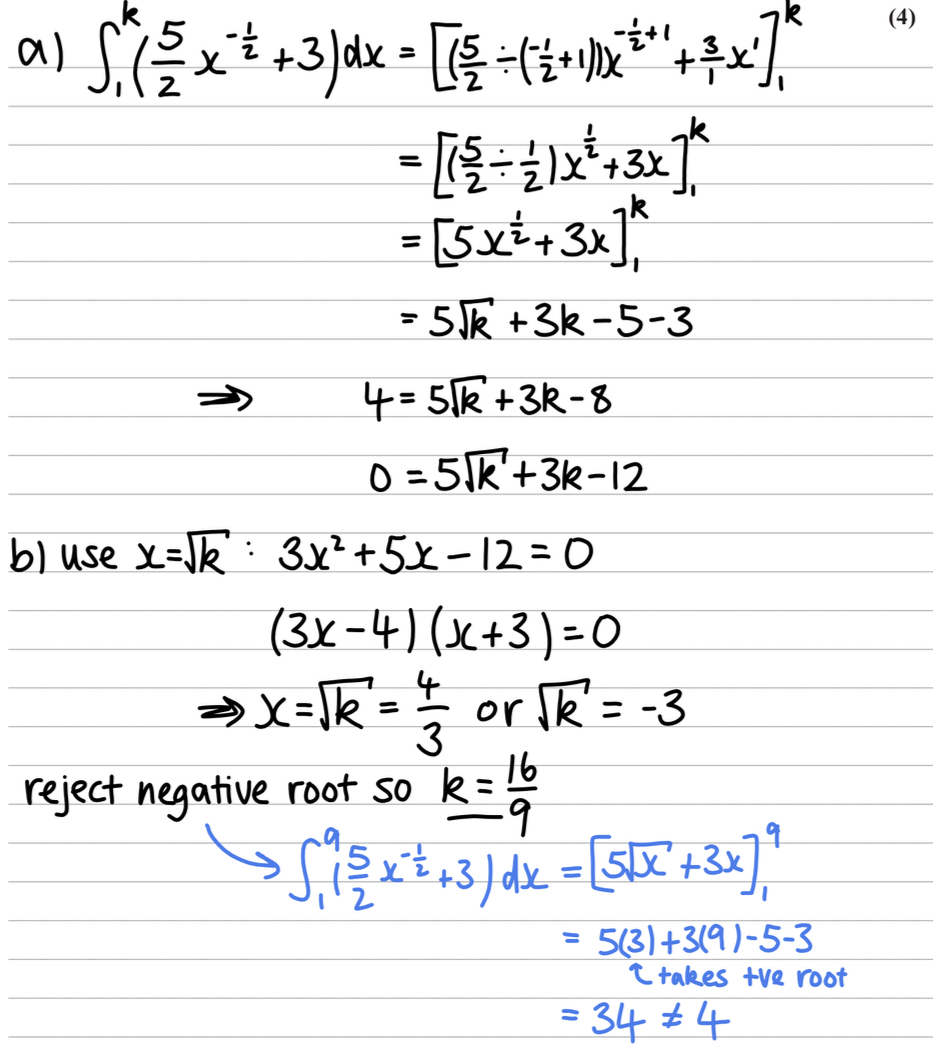 (4)
a) ∫₁ᵏ (5/2 x^(-1/2) + 3) dx = [(5/2 ÷ (-1/2 + 1)) x^(-1/2 + 1) + 3/1 x¹]₁ᵏ
= [(5/2 ÷ 1/2) x^(1/2) + 3x]₁ᵏ
= [5x^(1/2) + 3x]₁ᵏ
= 5√k + 3k - 5 - 3
⇒ 4 = 5√k + 3k - 8
0 = 5√k + 3k - 12
b) use x = √k : 3x² + 5x - 12 = 0
(3x - 4)(x + 3) = 0
⇒ x = √k = 4/3 or √k = -3
reject negative root so k = 16/9
∫₁⁹ (5/2 x^(-1/2) + 3) dx = [5√x + 3x]₁⁹
= 5(3) + 3(9) - 5 - 3
↑ takes +ve root
= 34 ≠ 4